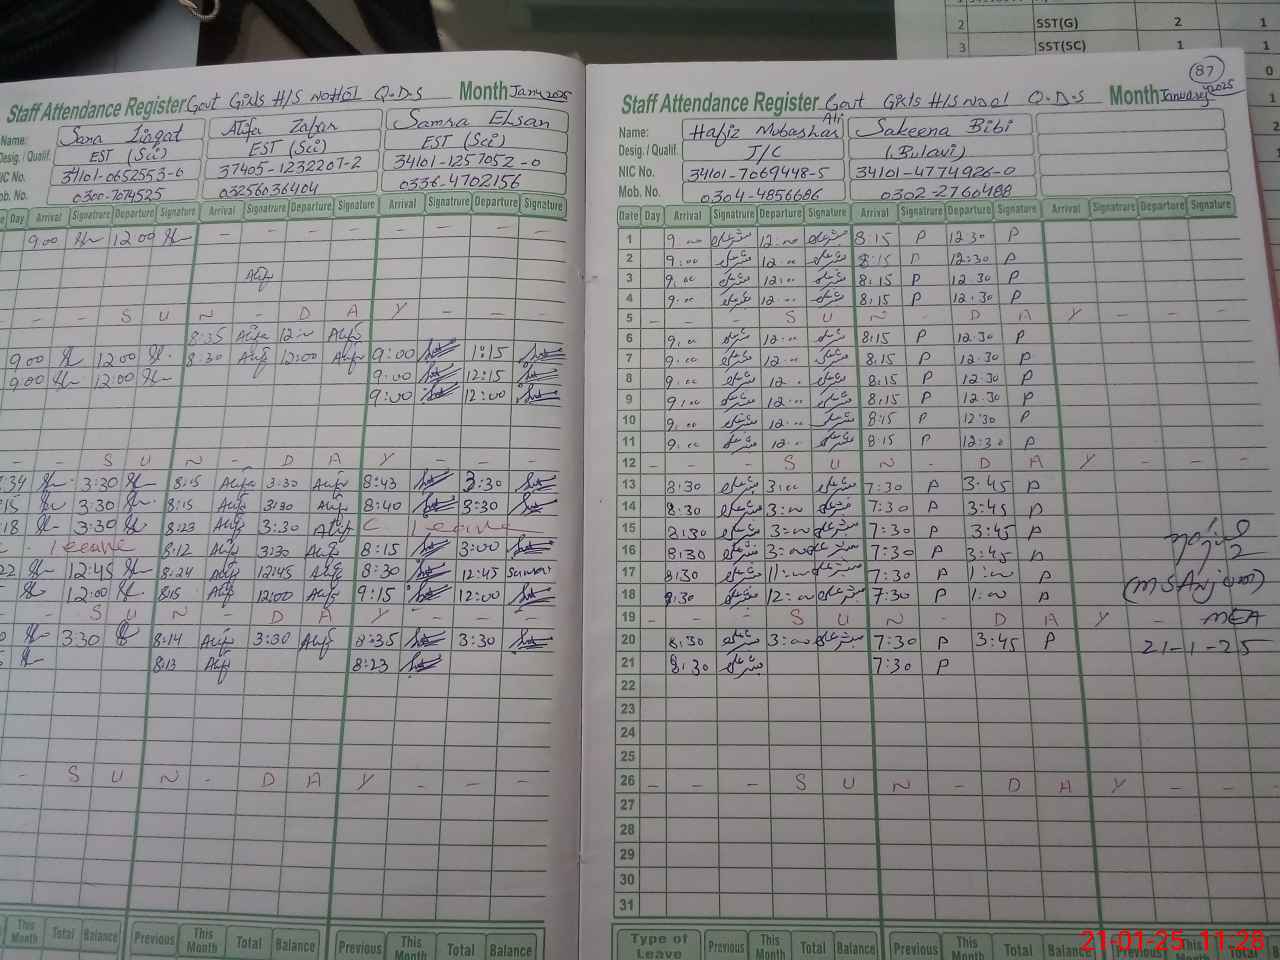 2 SST(G) 2 1
3 SST(SC) 1 1
Staff Attendance Register Govt Girls H/S No#01 Q.D.S Month Janu 2025
Name: Sana Liaqat Atifa Zafar Samra Ehsan
Desig. / Qualif. EST (Sci) EST (Sci) EST (Sci)
NIC No. 34101-0652553-6 37405-1232207-2 34101-1257052-0
Mob. No. 0300-7074525 03256036404 0336-4702156
Day Arrival Signature Departure Signature Arrival Signature Departure Signature Arrival Signature Departure Signature
9:00 12:00 - - - - - - - -
Atif
- - - S U N - D A Y - - -
8:35 Atifa 12:00 Atif
9:00 12:00 8:30 Atif 12:00 Atif 9:00 1:15
9:00 12:00 9:00 12:15
9:00 12:00
- - S U N - D A Y - - -
:34 3:30 8:15 Atifa 3:30 Atif 8:43 3:30
:15 3:30 8:15 Atif 3:30 Atif 8:40 3:30
:18 3:30 8:23 Atif 3:30 Atif C. leave
C. leave 8:12 Atif 3:30 Atif 8:15 3:00
:22 12:45 8:24 Atif 12:45 Atif 8:30 12:45
12:00 8:15 Atif 12:00 Atif 9:15 12:00
- - S U N - D A Y - - -
3:30 8:14 Atif 3:30 Atif 8:35 3:30
8:13 Atif 8:23
- S U N - D A Y - - -
This Month Total Balance Previous This Month Total Balance Previous This Month Total Balance
87
Staff Attendance Register Govt Girls H/S No 01 Q.D.S Month January 2025
Name: Hafiz Mubashar Ali Sakeena Bibi
Desig. / Qualif. J/C (Bulavi)
NIC No. 34101-7069448-5 34101-4774926-0
Mob. No. 0304-4856686 0302-2760488
Date Day Arrival Signatrure Departure Signature Arrival Signatrure Departure Signature Arrival Signatrure Departure Signature
1 9:00 12:00 8:15 P 12:30 P
2 9:00 12:00 8:15 P 12:30 P
3 9:00 12:00 8:15 P 12:30 P
4 9:00 12:00 8:15 P 12:30 P
5 - - - S U N - D A Y - - -
6 9:00 12:00 8:15 P 12:30 P
7 9:00 12:00 8:15 P 12:30 P
8 9:00 12:00 8:15 P 12:30 P
9 9:00 12:00 8:15 P 12:30 P
10 9:00 12:00 8:15 P 12:30 P
11 9:00 12:00 8:15 P 12:30 P
12 - - - S U N - D A Y - - -
13 8:30 3:00 7:30 P 3:45 P
14 8:30 3:00 7:30 P 3:45 P
15 8:30 3:00 7:30 P 3:45 P
16 8:30 3:00 7:30 P 3:45 P
17 8:30 11:00 7:30 P 1:00 P
18 8:30 12:00 7:30 P 1:00 P
19 - - - S U N - D A Y -
20 8:30 3:00 7:30 P 3:45 P
21 8:30 7:30 P
(M S Anjum)
MEA
21-1-25
22
23
24
25
26 - - - S U N - D A Y - - -
27
28
29
30
31
Type of Leave Previous This Month Total Balance Previous This Month Total Balance Previous This Month Total
21-01-25 11:28